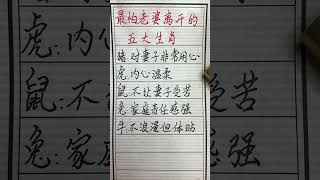 最怕老婆离开的
五大生肖
猪:对妻子非常用心
虎:内心温柔
鼠:不让妻子受苦
兔:家庭责任感强
牛:不浪漫但体贴
虎:内心
鼠:不
兔:家
柔
受苦
感强